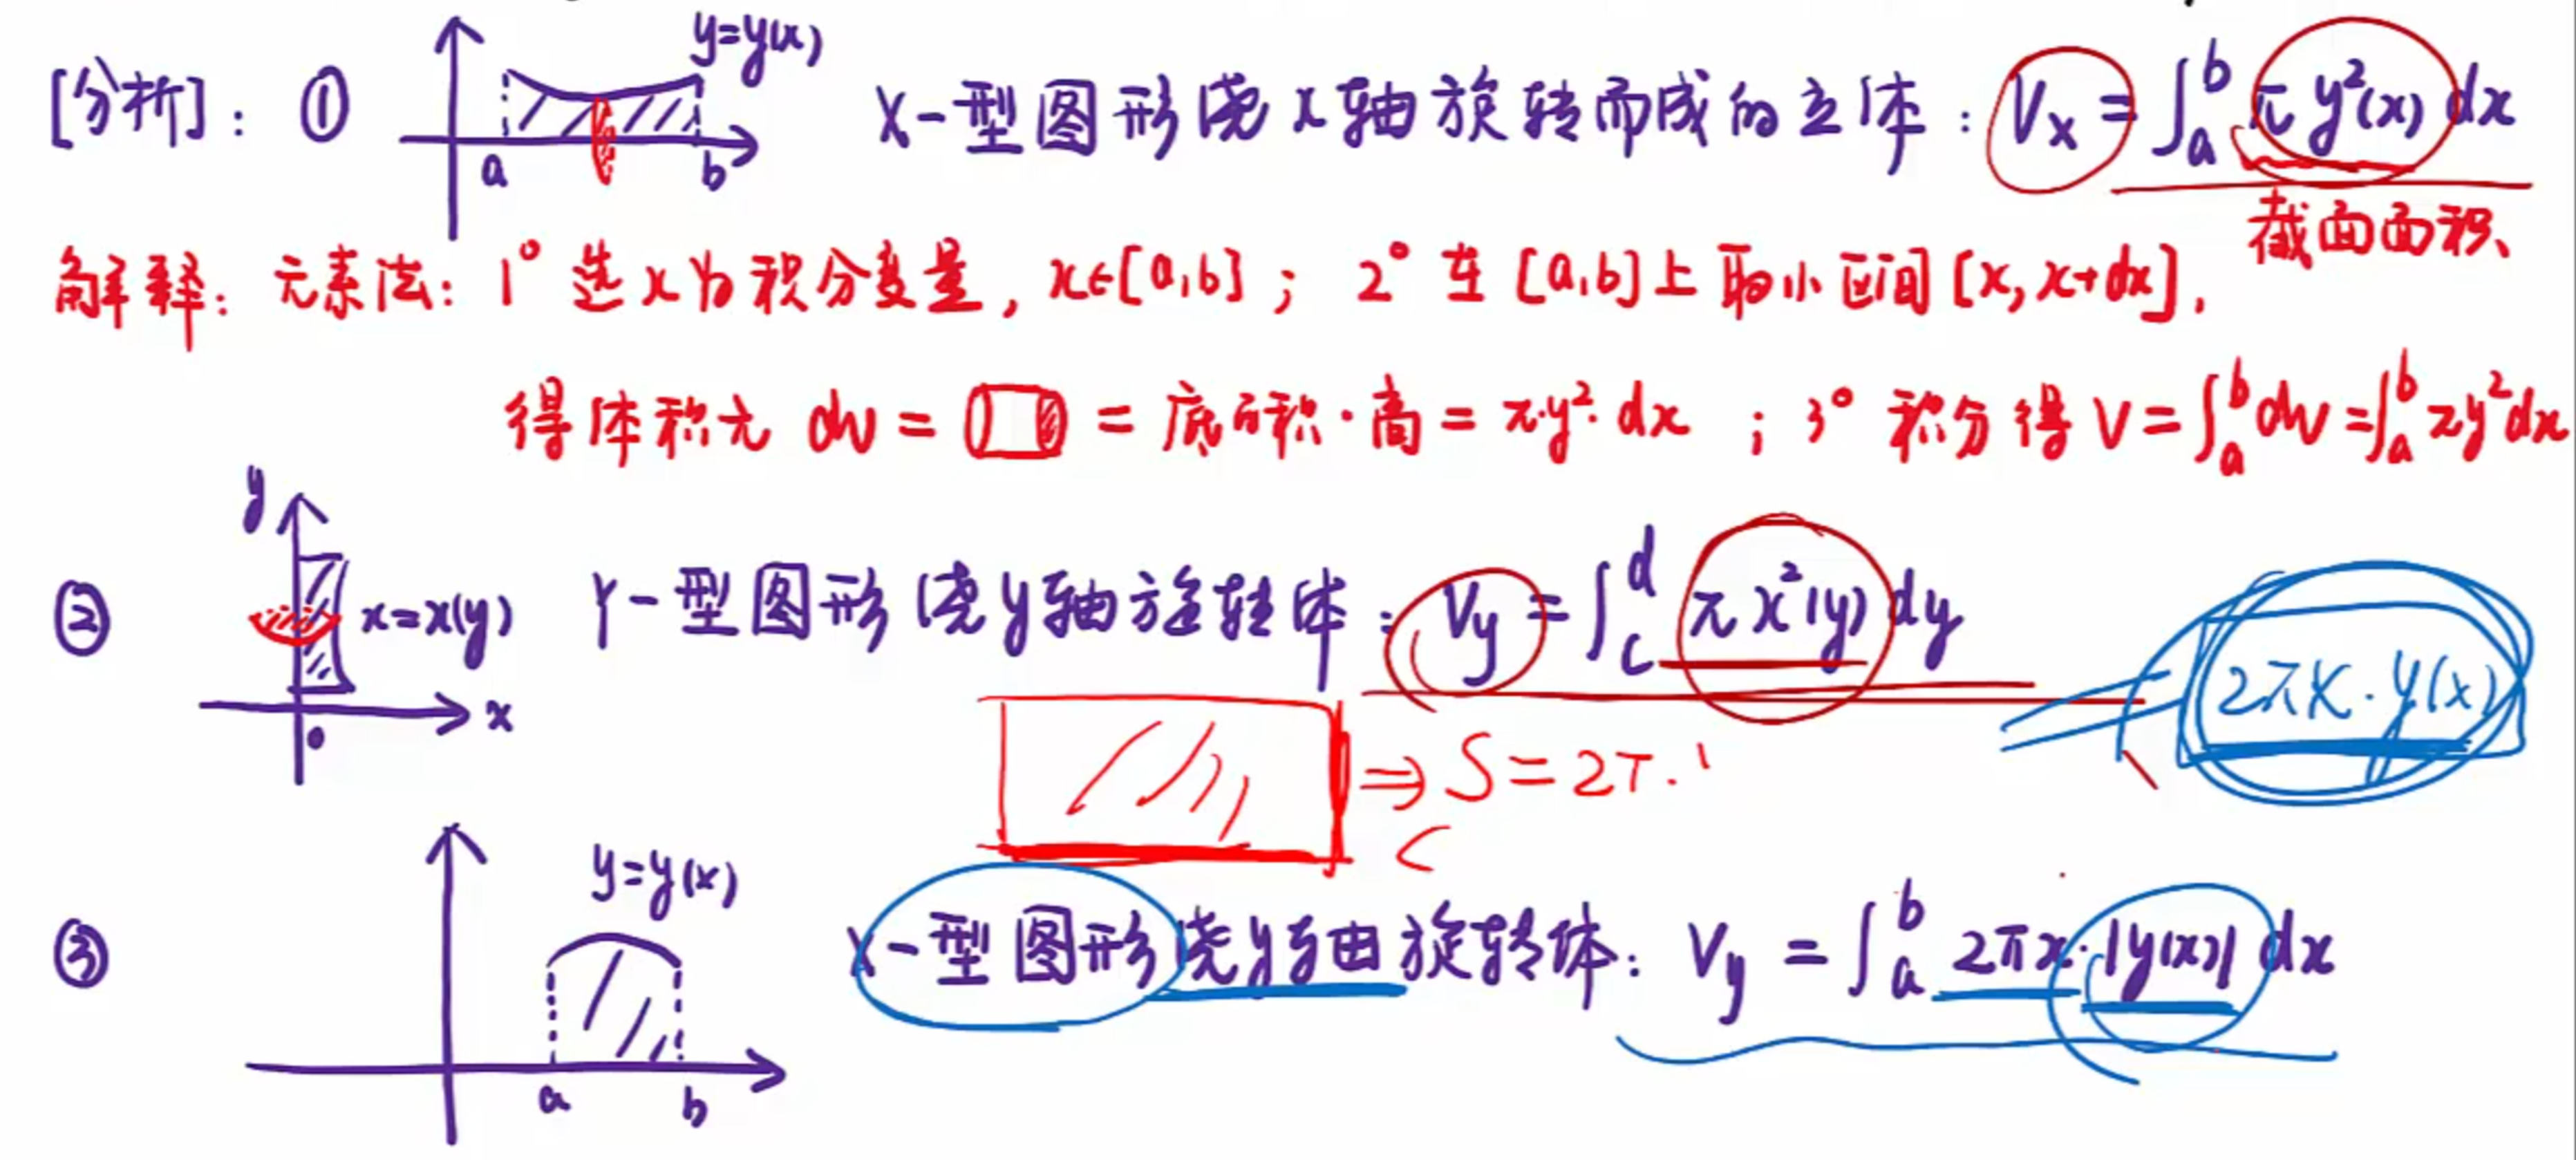 [分析]: ① y=y(x) X-型图形绕x轴旋转而成的立体: Vx = ∫_a^b π y²(x) dx
a b
截面面积
解释: 元素法: 1° 选x为积分变量, x∈[a,b]; 2° 在[a,b]上取小区间[x, x+dx],
得体积元 dv = = 底面积·高 = π·y²·dx ; 3° 积分得 V = ∫_a^b dv = ∫_a^b πy²dx
y
② x=x(y) Y-型图形绕y轴旋转体: Vy = ∫_c^d π x²(y) dy
2πx·y(x)
0 x
⇒ S = 2π·
y=y(x)
③ X-型图形绕y轴旋转体: Vy = ∫_a^b 2πx·|y(x)| dx
a b